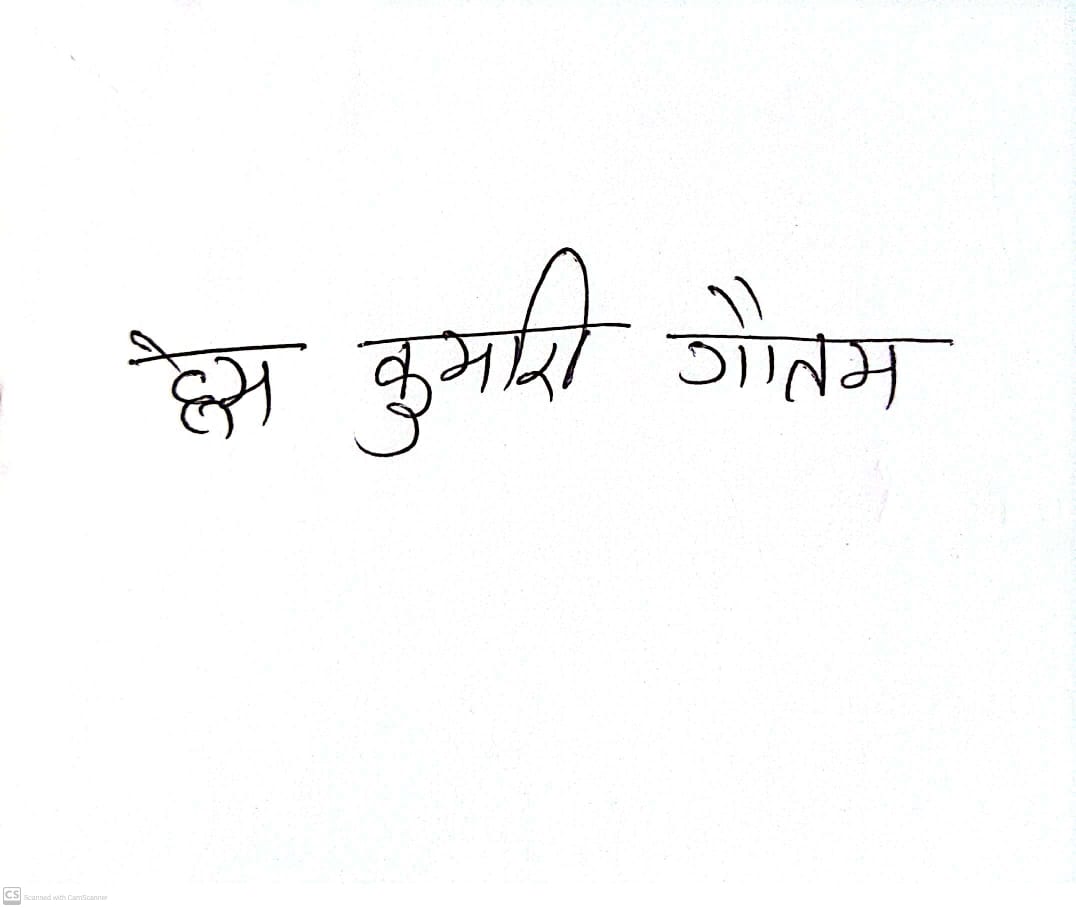 हेम कुमारी गौतम
CS Scanned with CamScanner